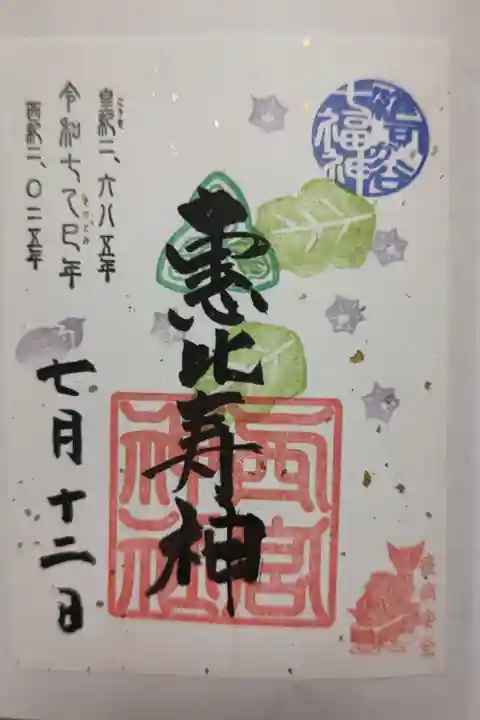 七福神
惠比寿神
西宮
神社
皇紀二、六八五年
令和七乙巳年
きのとみ
西紀二、〇二五年
七月十二日